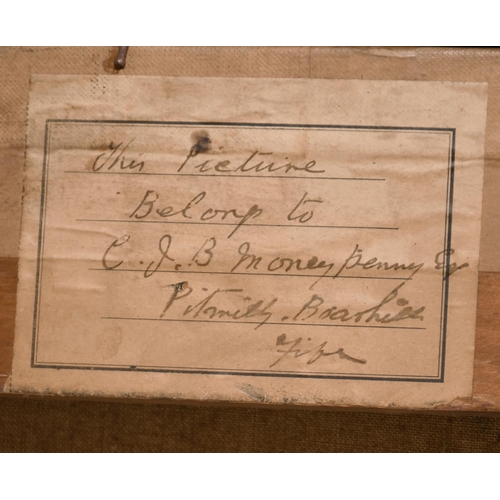 This Picture
Belong to
C. J. B Moneypenny Esq
Pitmilly. Boarhills
Fife